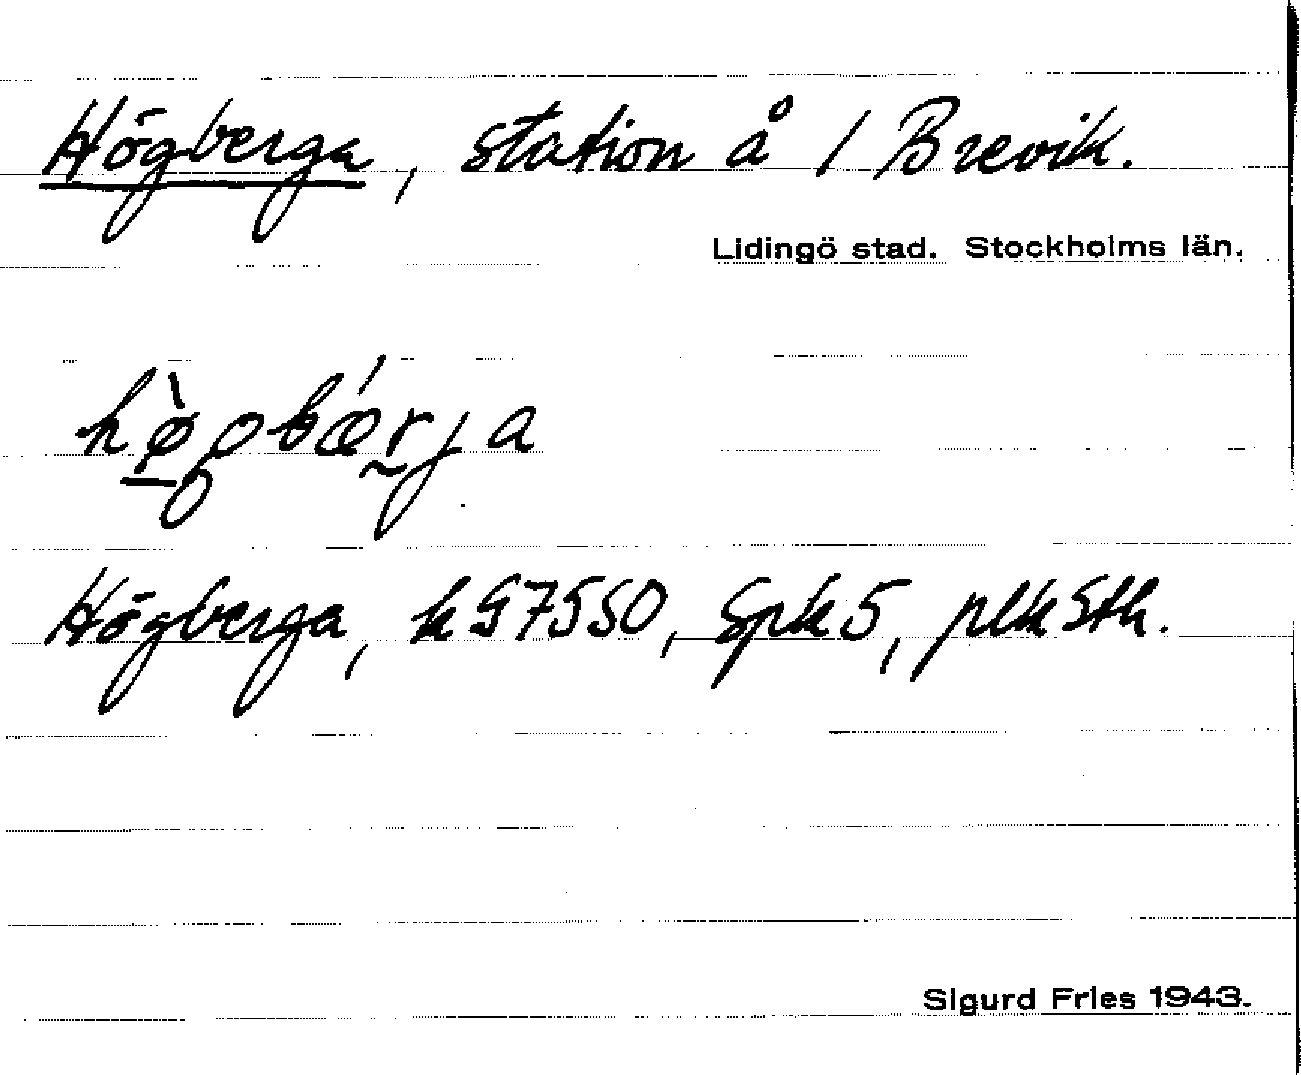 Högberga, station å / Brevik.
Lidingö stad. Stockholms län.
hø̠̀gbǽr̰ja
Högberga, k G7550, Spk 5, plk Sth.
Sigurd Fries 1943.